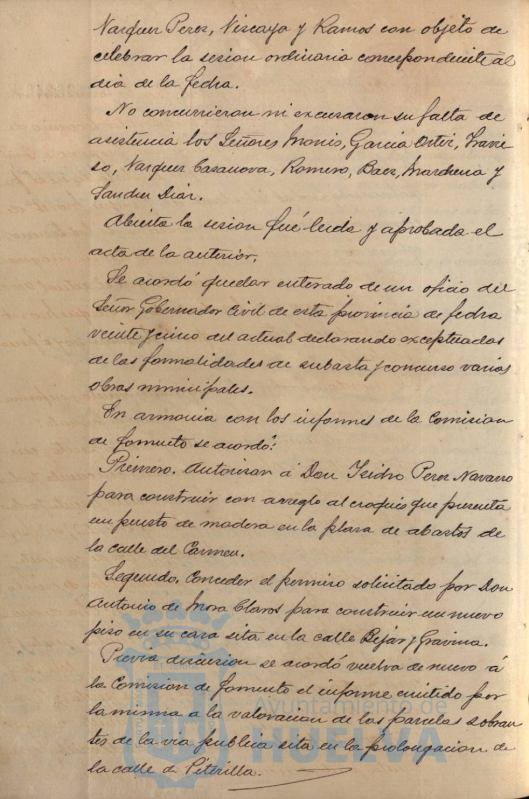 Vazquez Perez, Viscaya y Ramos con objeto de
celebrar la sesion ordinaria correspondiente al
dia de la fecha.
No concurrieron ni excusaron su falta de
asistencia los Señores Monis, Garcia Ortiz, Travie
so, Vazquez Casanova, Romero, Baez, Marchena y
Sanchez Diaz.
Abierta la sesion fué leida y aprobada el
acta de la anterior.
Se acordó quedar enterado de un oficio del
Señor Gobernador Civil de esta provincia de fecha
veinte y cinco del actual declarando exceptuadas
de las formalidades de subasta y concurso varias
obras municipales.
En armonia con los informes de la Comision
de fomento se acordó:
Primero. Autorizar á Don Isidro Perez Navarro
para construir con arreglo al croquis que presenta
un puesto de madera en la plaza de abastos de
la calle del Carmen.
Segundo. Conceder el permiso solicitado por Don
Antonio de Mora Claros para construir un nuevo
piso en su casa sita en la calle Bejar y Gravina.
Previa discusion se acordó vuelva de nuevo á
la Comision de fomento el informe emitido por
la misma a la valoracion de las parcelas sobran
tes de la via publica sita en la prolongacion de
la calle de Piterilla.
Ayuntamiento de
HUELVA